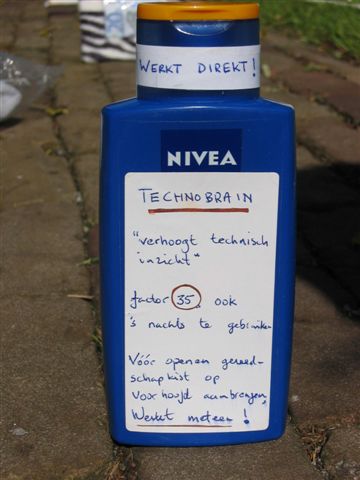 WERKT DIREKT!
NIVEA
TECHNOBRAIN
"verhoogt technisch
inzicht"
factor 35, ook
's nachts te gebruiken
Vóór openen gereed-
schapkist op
voorhoofd aanbrengen,
Werkt meteen!